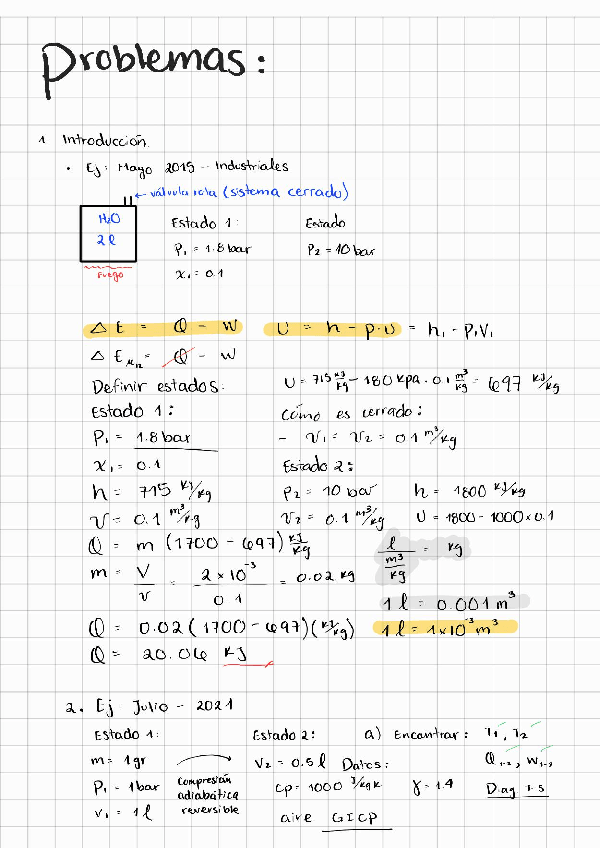 Problemas:
1 Introducción.
• Ej: Mayo 2015 - Industriales
← válvula rota (sistema cerrado)
H₂O
2 l
Fuego
Estado 1:
P₁ = 1.8 bar
x₁ = 0.1
Estado
P₂ = 10 bar
Δ E = Q - W
U = h - p·v = h₁ - P₁V₁
Δ E = Q - W
U = 715 kJ/kg - 180 kPa · 0.1 m³/kg = 697 kJ/kg
Definir estados:
Estado 1:
P₁ = 1.8 bar
x₁ = 0.1
h = 715 kJ/kg
v = 0.1 m³/kg
Cómo es cerrado:
- v₁ = v₂ = 0.1 m³/kg
Estado 2:
P₂ = 10 bar
h = 1800 kJ/kg
v₂ = 0.1 m³/kg
U = 1800 - 1000 × 0.1
Q = m (1700 - 697) kJ/kg
m = V/v = 2 × 10⁻³/0.1 = 0.02 kg
l/(m³/kg) = kg
1 l = 0.001 m³
1 l = 1×10⁻³ m³
Q = 0.02 (1700 - 697) (kJ/kg)
Q = 20.06 kJ
2. Ej Julio - 2021
Estado 1:
m = 1gr
P₁ = 1bar
v₁ = 1 l
Compresión
adiabática
reversible
Estado 2:
V₂ = 0.5 l
Datos:
Cp = 1000 J/kgK
γ = 1.4
aire GICP
a) Encontrar: T₁, T₂
Q₁₋₂, W₁₋₂
Diag T-S